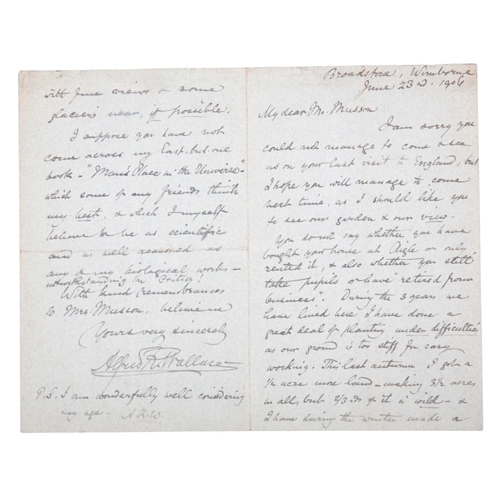 Broadstone, Wimborne
June 23rd. 1906
My dear Mr. Musson
I am sorry you
could not manage to come & see
us on your last visit to England, but
I hope you will manage to come
next time, as I should like you
to see our garden & our view.
You do not say whether you have
bought your house at Aigle or only
rented it, & also whether you still
take pupils or have "retired from
business". During the 3 years we
have lived here I have done a
great deal of planting under difficulties
as our ground is too stiff for easy
working. This last autumn I got a
¼ acre more land - making 3½ acres
in all, but 2/3rds of it is wild - &
I have during the winter made a
with fine views & some
glaciers near, if possible.
I suppose you have not
come across my last but one
book - "Man's Place in the Universe"
which some of my friends think
my best, & which I myself
believe to be as scientific
and as well reasoned as
any of my biological works -
notwithstanding
With kind remembrances
to Mrs. Musson, believe me
Yours very sincerely
Alfred R. Wallace
P.S. I am wonderfully well considering
my age - A.R.W.